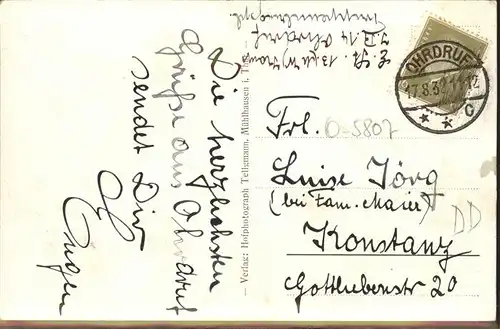 Die herzlichsten
Grüße aus Ohrdruf
sendet Dir
Eugen
7.II.14 Ohrdruf
— Verlag: Hofphotograph Tellgmann, Mühlhausen i. Thür. —
OHRDRUF
17.8.3 11-12
* * C
Frl. O-5807
Luise Jörg
(bei Fam. Maier)
DD
Konstanz
Gottlieberstr 20